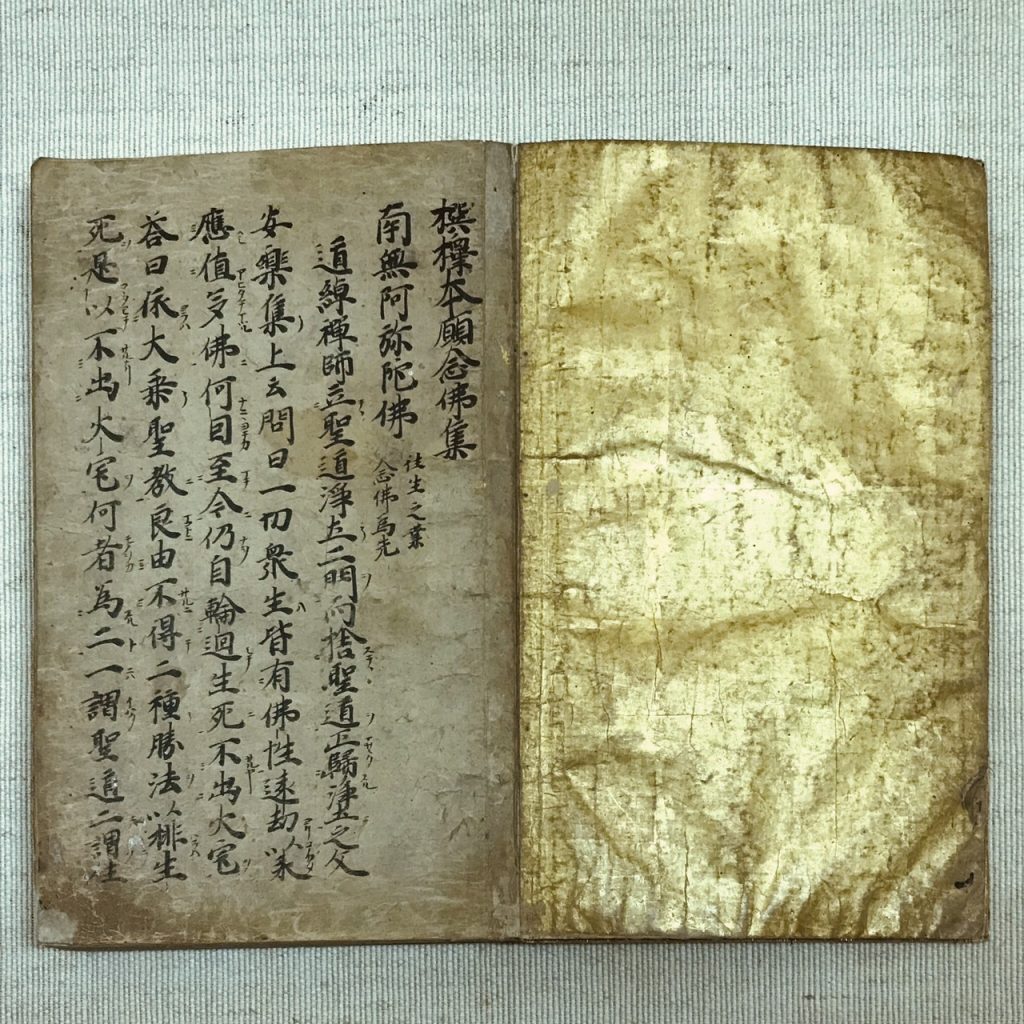 撰擇本願念佛集
南無阿弥陀佛
往生之業
念佛為先
道綽禪師立聖道浄土二門而捨聖道正歸浄土之文
安樂集上云問曰一切衆生皆有佛性遠劫以来
應値多佛何因至今仍自輪迴生死不出火宅
荅曰依大乗聖教良由不得二種勝法以排生
死是以不出火宅何者為二一謂聖道二謂往